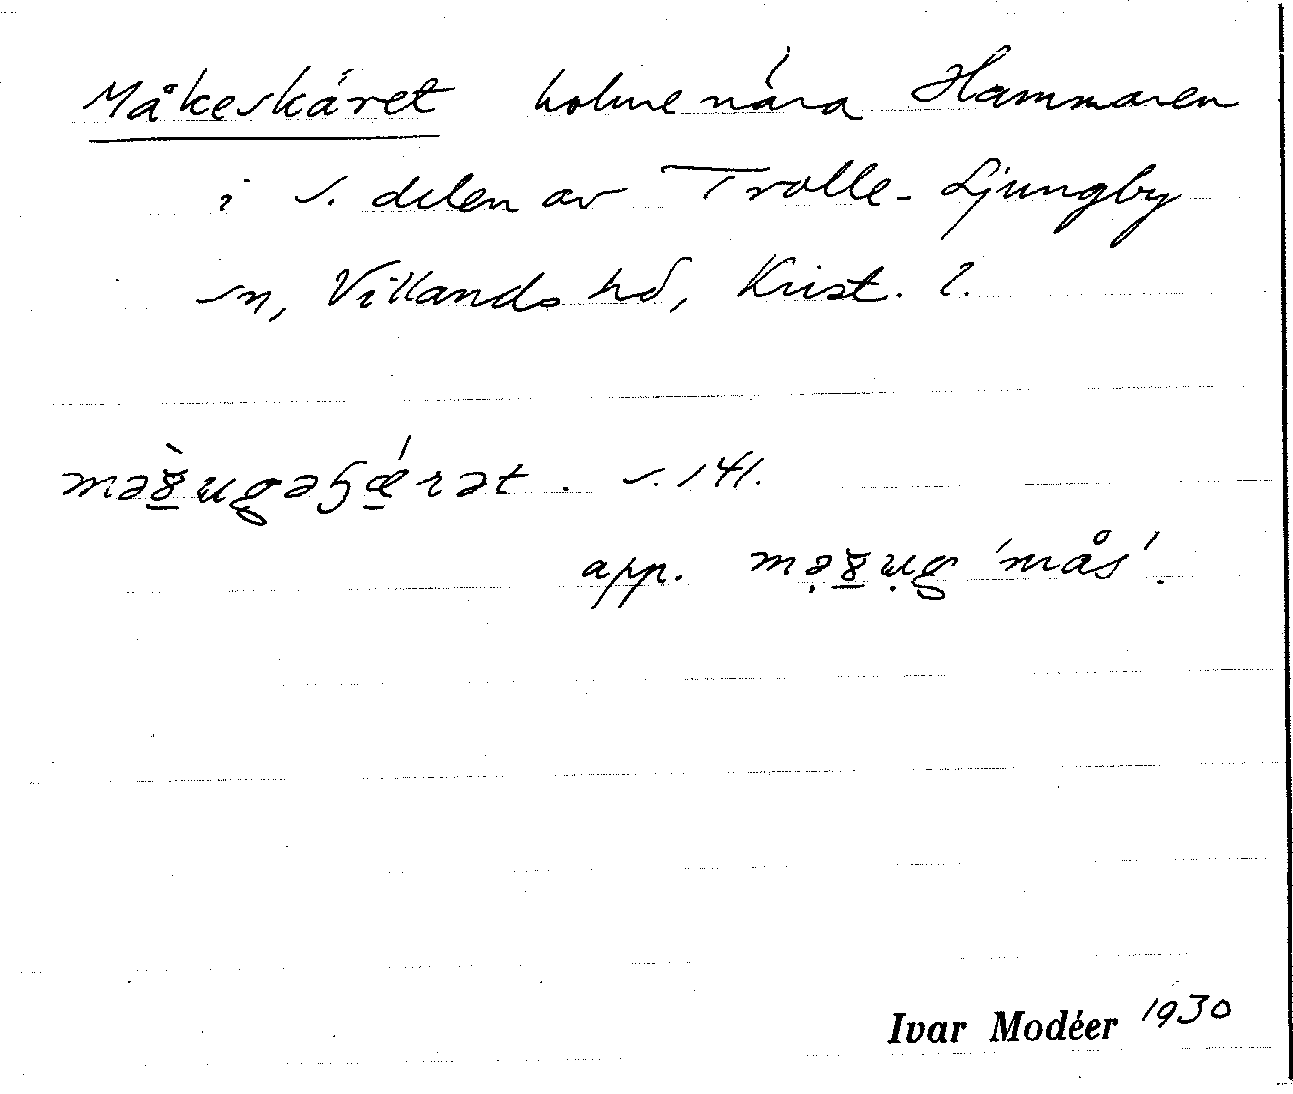 Måkeskäret holme nära Hammaren
i s. delen av Trolle-Ljungby
sn, Villands hd, Krist. l.
s. 141.
app. 'mås'.
Ivar Modéer 1930